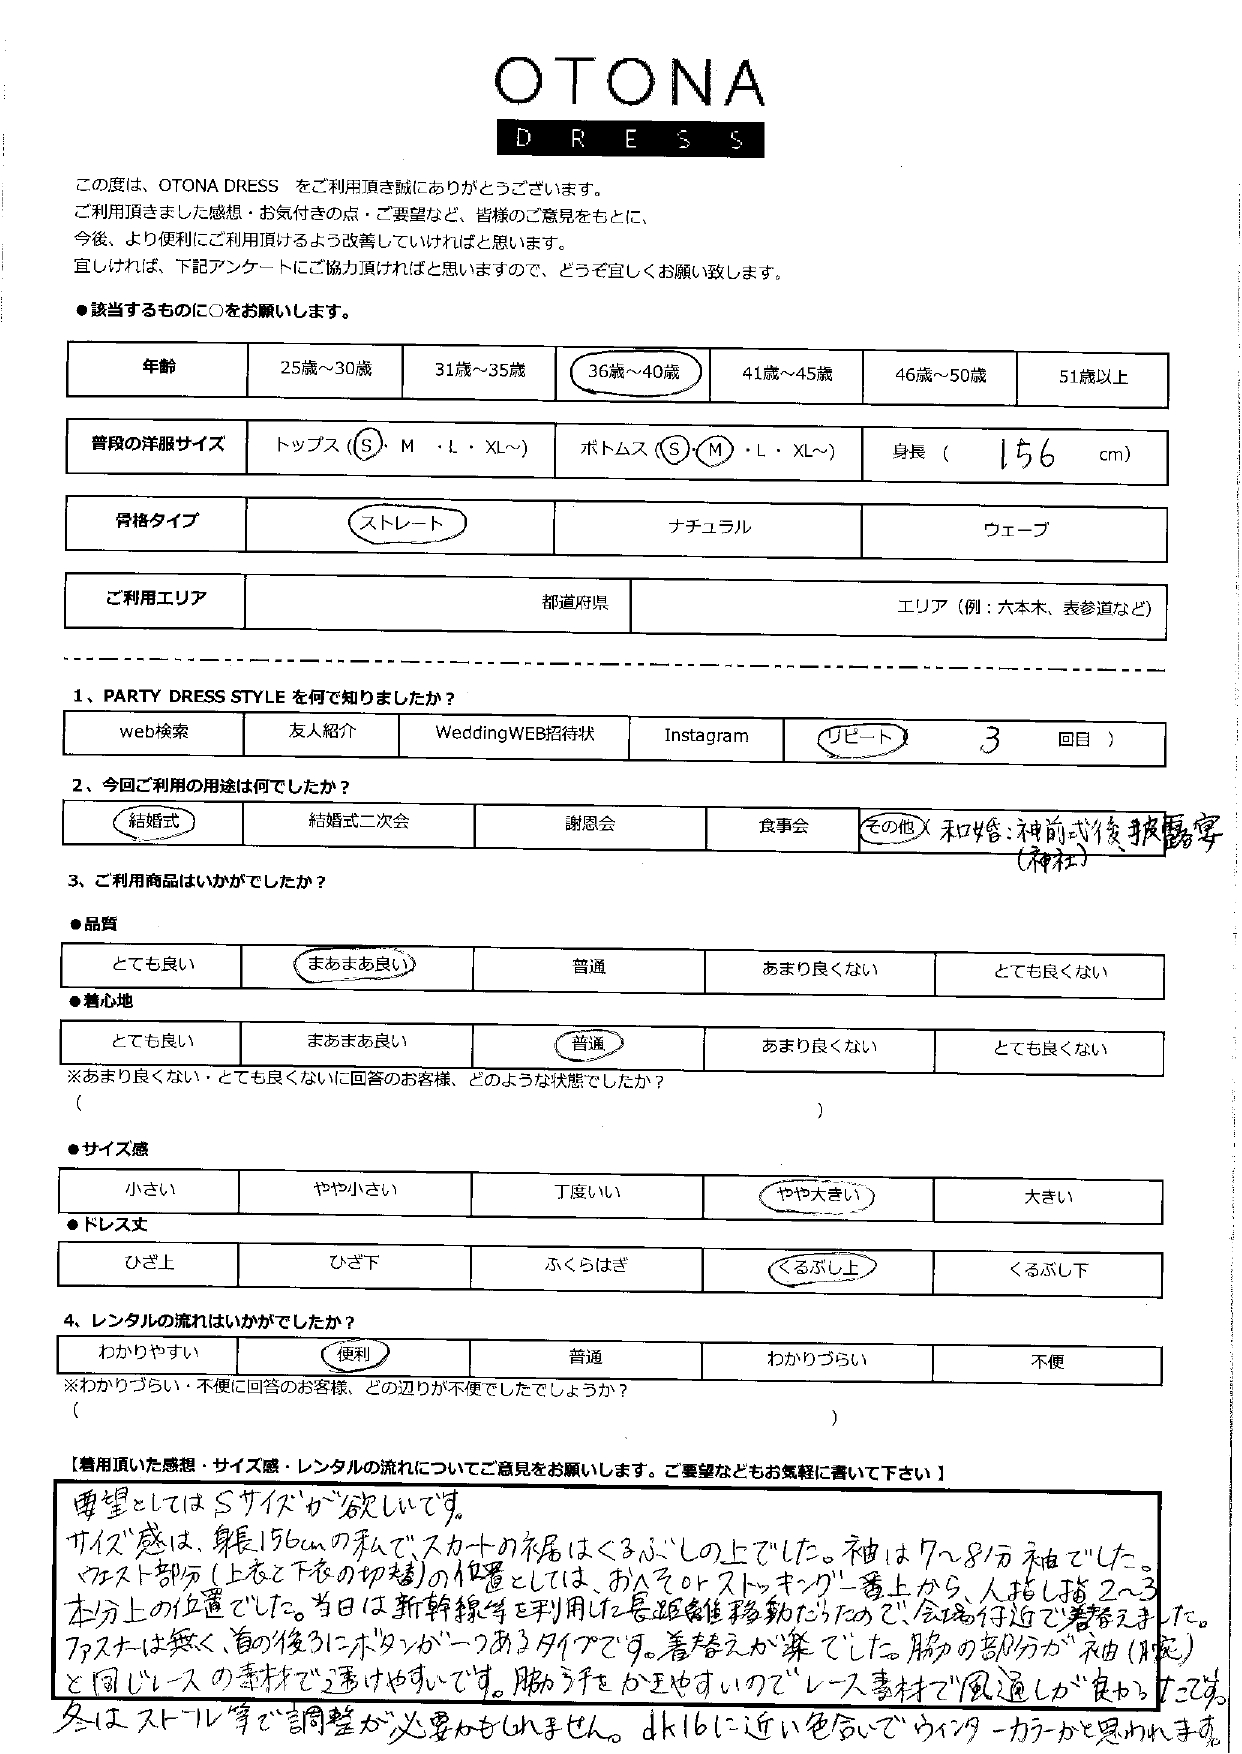 OTONA
DRESS
この度は、OTONA DRESS をご利用頂き誠にありがとうございます。
ご利用頂きました感想・お気付きの点・ご要望など、皆様のご意見をもとに、
今後、より便利にご利用頂けるよう改善していければと思います。
宜しければ、下記アンケートにご協力頂ければと思いますので、どうぞ宜しくお願い致します。
●該当するものに○をお願いします。
年齢 25歳～30歳 31歳～35歳 36歳～40歳 41歳～45歳 46歳～50歳 51歳以上
普段の洋服サイズ トップス (S・M ・L・XL～) ボトムス (S・M ・L・XL～) 身長 ( 156 cm)
骨格タイプ ストレート ナチュラル ウェーブ
ご利用エリア 都道府県 エリア（例：六本木、表参道など）
1、PARTY DRESS STYLE を何で知りましたか？
web検索 友人紹介 WeddingWEB招待状 Instagram リピート( 3 回目 )
2、今回ご利用の用途は何でしたか？
結婚式 結婚式二次会 謝恩会 食事会 その他( 和婚：神前式後、披露宴
(神社)
3、ご利用商品はいかがでしたか？
●品質
とても良い まあまあ良い 普通 あまり良くない とても良くない
●着心地
とても良い まあまあ良い 普通 あまり良くない とても良くない
※あまり良くない・とても良くないに回答のお客様、どのような状態でしたか？
( )
●サイズ感
小さい やや小さい 丁度いい やや大きい 大きい
●ドレス丈
ひざ上 ひざ下 ふくらはぎ くるぶし上 くるぶし下
4、レンタルの流れはいかがでしたか？
わかりやすい 便利 普通 わかりづらい 不便
※わかりづらい・不便に回答のお客様、どの辺りが不便でしたでしょうか？
( )
【着用頂いた感想・サイズ感・レンタルの流れについてご意見をお願いします。ご要望などもお気軽に書いて下さい】
要望としてはSサイズが欲しいです。
サイズ感は、身長156cmの私で、スカートの裾はくるぶしの上でした。袖は7～8分袖でした。
ウエスト部分(上衣と下衣の切替)の位置としては、おへそorストッキング一番上から、人指し指2～3
本分上の位置でした。当日は新幹線等を利用した長距離移動だったので、会場付近で着替えました。
ファスナーは無く、首の後ろにボタンが一つあるタイプです。着替えが楽でした。脇の部分が袖(腕)
と同じレースの素材で透けやすいです。脇う汗をかきやすいのでレース素材で風通しが良かったです。
冬はストール等で調整が必要かもしれません。dk16に近い色合いでウィンターカラーかと思われます。